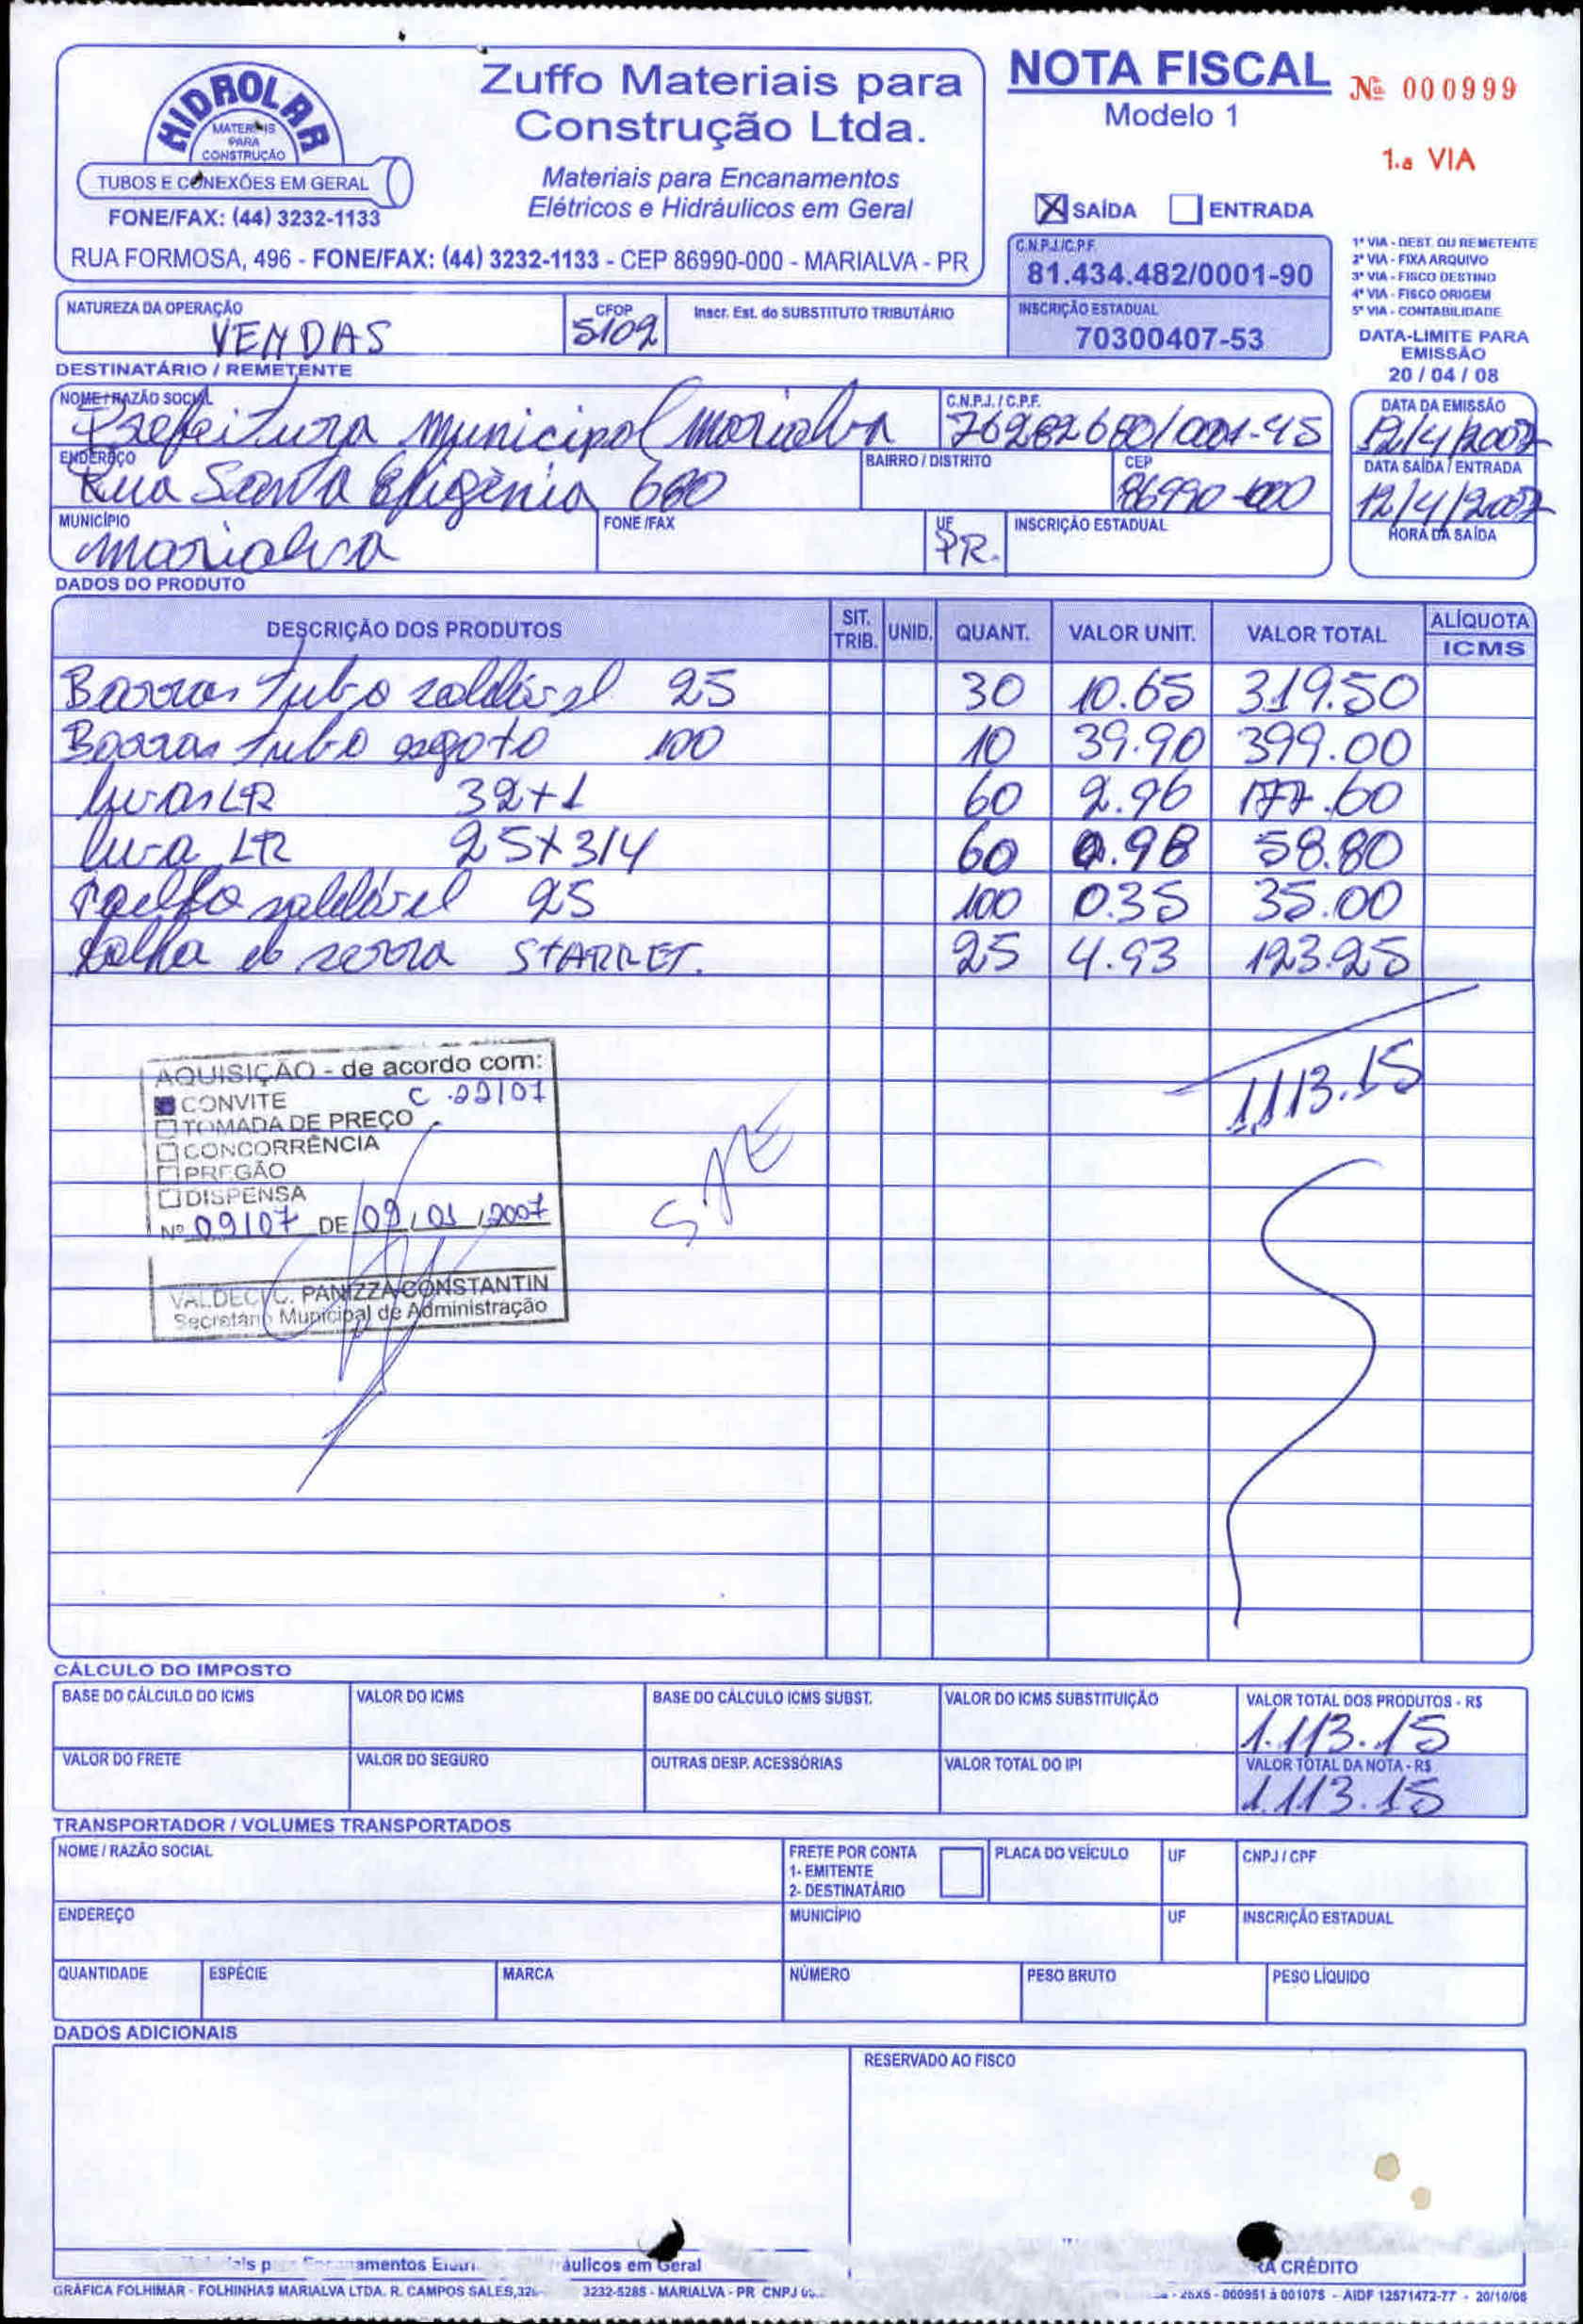 HIDROLAR
MATERIAIS
PARA
CONSTRUÇÃO
TUBOS E CONEXÕES EM GERAL
FONE/FAX: (44) 3232-1133
Zuffo Materiais para
Construção Ltda.
Materiais para Encanamentos
Elétricos e Hidráulicos em Geral
RUA FORMOSA, 496 - FONE/FAX: (44) 3232-1133 - CEP 86990-000 - MARIALVA - PR
NOTA FISCAL Nº 000999
Modelo 1
1.a VIA
X SAÍDA ENTRADA
C.N.P.J./C.P.F.
81.434.482/0001-90
INSCRIÇÃO ESTADUAL
70300407-53
1ª VIA - DEST. OU REMETENTE
2ª VIA - FIXA ARQUIVO
3ª VIA - FISCO DESTINO
4ª VIA - FISCO ORIGEM
5ª VIA - CONTABILIDADE
DATA-LIMITE PARA
EMISSÃO
20 / 04 / 08
NATUREZA DA OPERAÇÃO
VENDAS
CFOP
5102
Inscr. Est. do SUBSTITUTO TRIBUTÁRIO
DESTINATÁRIO / REMETENTE
NOME / RAZÃO SOCIAL
Prefeitura Municipal Marialva
C.N.P.J. / C.P.F.
76282680/0001-45
DATA DA EMISSÃO
12/4/2007
ENDEREÇO
Rua Santa Efigênia 680
BAIRRO / DISTRITO
CEP
86990-000
DATA SAÍDA / ENTRADA
12/4/2007
MUNICÍPIO
Marialva
FONE /FAX
UF
PR.
INSCRIÇÃO ESTADUAL
HORA DA SAÍDA
DADOS DO PRODUTO
DESCRIÇÃO DOS PRODUTOS SIT. TRIB. UNID. QUANT. VALOR UNIT. VALOR TOTAL ALÍQUOTA ICMS
Barras tubo soldável 25 30 10.65 319.50
Barras tubo esgoto 100 10 39.90 399.00
luvas LR 32+1 60 2.96 177.60
luva LR 25x3/4 60 0.98 58.80
Joelho soldável 25 100 0.35 35.00
Folha de serra STARRET. 25 4.93 123.25
1113.15
AQUISIÇÃO - de acordo com:
CONVITE C.22107
TOMADA DE PREÇO
CONCORRÊNCIA
PREGÃO
DISPENSA
Nº 09107 DE 09/01/2007
VALDECI C. PANIZZA CONSTANTIN
Secretário Municipal de Administração
SAAE
CÁLCULO DO IMPOSTO
BASE DO CÁLCULO DO ICMS VALOR DO ICMS BASE DO CÁLCULO ICMS SUBST. VALOR DO ICMS SUBSTITUIÇÃO VALOR TOTAL DOS PRODUTOS - R$
1.113.15
VALOR DO FRETE VALOR DO SEGURO OUTRAS DESP. ACESSÓRIAS VALOR TOTAL DO IPI VALOR TOTAL DA NOTA - R$
1.113.15
TRANSPORTADOR / VOLUMES TRANSPORTADOS
NOME / RAZÃO SOCIAL
FRETE POR CONTA
1- EMITENTE
2- DESTINATÁRIO
PLACA DO VEÍCULO UF CNPJ / CPF
ENDEREÇO MUNICÍPIO UF INSCRIÇÃO ESTADUAL
QUANTIDADE ESPÉCIE MARCA NÚMERO PESO BRUTO PESO LÍQUIDO
DADOS ADICIONAIS
RESERVADO AO FISCO
em Geral
CRÉDITO
GRÁFICA FOLHIMAR - FOLHINHAS MARIALVA LTDA. R. CAMPOS SALES, 3232-5285 - MARIALVA - PR CNPJ - 25X5 - 000951 à 001075 - AIDF 12571472-77 - 20/10/06